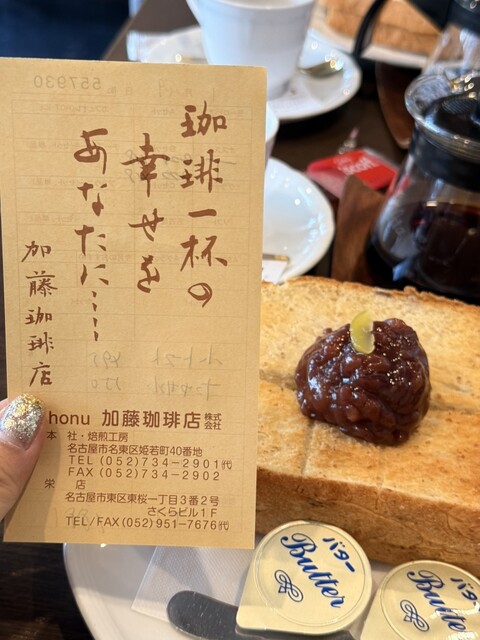 珈琲一杯の
幸せを
あなたに……
加藤珈琲店
honu 加藤珈琲店 株式会社
本 社・焙煎工房
名古屋市名東区姫若町40番地
TEL (052)734-2901㈹
FAX (052)734-2902
栄 店
名古屋市東区東桜一丁目3番2号
さくらビル1F
TEL/FAX(052)951-7676㈹
バター
Butter
バター
Butter
557930